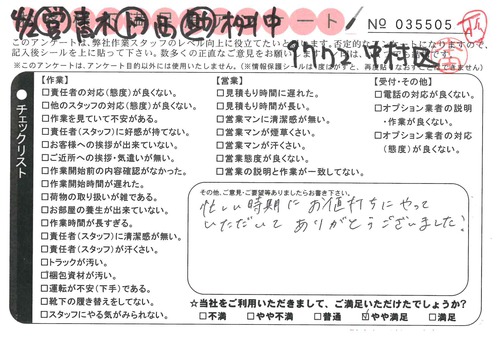 アンケート
№ 035505
このアンケートは、弊社作業スタッフのレベル向上に役立てたいと
記入後シールを上に貼って下さい。数多くの正直なご意見をお願い
※このアンケートは、アンケート目的以外には使用いたしません。(※情報保護シールは一度はがすと、再度貼りなおすことはできません)
中村区
チェックリスト
【作業】
□責任者の対応(態度)が良くない。
□他のスタッフの対応(態度)が良くない。
□作業を見ていて不安がある。
□責任者(スタッフ)に好感が持てない。
□お客様への挨拶が出来ていない。
□ご近所への挨拶・気遣いが無い。
□作業開始前の内容確認がなかった。
□作業開始時間が遅れた。
□荷物の取り扱いが雑である。
□お部屋の養生が出来ていない。
□作業時間が長すぎる。
□責任者(スタッフ)に清潔感が無い。
□責任者(スタッフ)が汗くさい。
□トラックが汚い。
□梱包資材が汚い。
□運転が不安(下手)である。
□靴下の履き替えをしてない。
□スタッフにやる気がみられない。
【営業】
□見積もり時間に遅れた。
□見積もり時間が長い。
□営業マンに清潔感が無い。
□営業マンが煙草くさい。
□営業マンが汗くさい。
□営業態度が良くない。
□営業の説明と作業が一致してない。
【受付・その他】
□電話の対応が良くない。
□オプション業者の説明・作業が良くない。
□オプション業者の対応(態度)が良くない。
その他、ご意見・ご要望等ありましたらお書き下さい。
忙しい時期にお値打ちにやって
いただいてありがとうございました!
☆当社をご利用いただきまして、ご満足いただけたでしょうか?
□不満 □やや不満 □普通 ☑やや満足 □満足